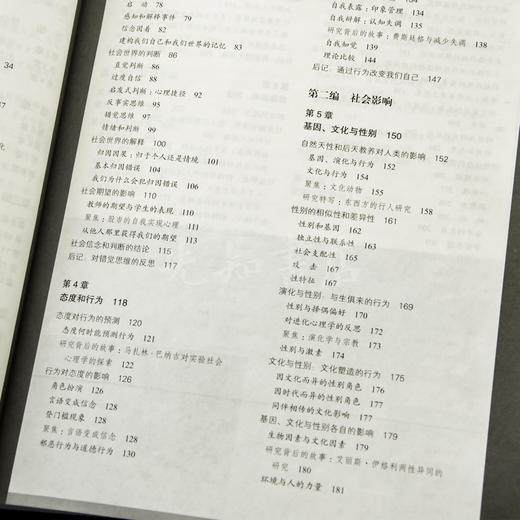 34
化
启动 78
感知和解释事件 79
信念固着 82
建构我们自己和我们世界的记忆 83
社会世界的判断 86
直觉判断 86
过度自信 88
启发式判断：心理捷径 92
反事实思维 95
错觉思维 97
情绪和判断 99
社会世界的解释 100
归因因果：归于个人还是情境 101
基本归因错误 104
我们为什么会犯归因错误 106
社会期望的影响 110
教师的期望与学生的表现 110
聚焦：股市的自我实现心理 111
从他人那里获得我们的期望 113
社会信念和判断的结论 115
后记：对错觉思维的反思 117
第4章
态度和行为 118
态度对行为的预测 120
态度何时能预测行为 121
研究背后的故事：马扎林·巴纳吉对实验社会
心理学的探索 122
行为对态度的影响 126
角色扮演 126
言语变成信念 128
登门槛现象 128
聚焦：言语变成信念 128
邪恶行为与道德行为 130
自我表露：印象管理 134
自我辩解：认知失调
研究背后的故事：费斯廷格与减少失调 138
自我知觉 139
理论比较 144
后记：通过行为改变我们自己 147
第二编 社会影响
第5章
基因、文化与性别 150
自然天性和后天教养对人类的影响 152
基因、演化与行为 152
文化与行为 154
聚焦：文化动物 155
研究特写：东西方的行人研究 158
性别的相似性和差异性 161
性别和基因 162
独立性与联系性 163
社会支配性 165
攻击 167
性特征 167
演化与性别：与生俱来的行为 169
性别与择偶偏好 170
对进化心理学的反思 172
聚焦：演化学与宗教 173
性别与激素 174
文化与性别：文化塑造的行为 175
因文化而异的性别角色 176
因时代而异的性别角色 177
同伴相传的文化影响 177
基因、文化与性别各自的影响 179
生物因素与文化因素 179
研究背后的故事：艾丽斯·伊格利两性异同的
研究 180
环境与人的力量 181